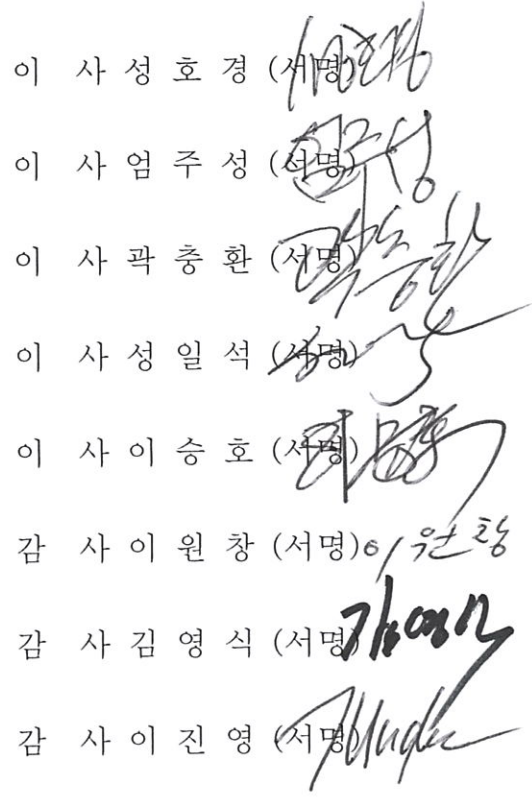 이 사 성 호 경 (서명)
이 사 엄 주 성 (서명) 엄주성
이 사 곽 충 환 (서명) 곽충환
이 사 성 일 석 (서명)
이 사 이 승 호 (서명)
감 사 이 원 창 (서명) 이원창
감 사 김 영 식 (서명) 김영식
감 사 이 진 영 (서명)